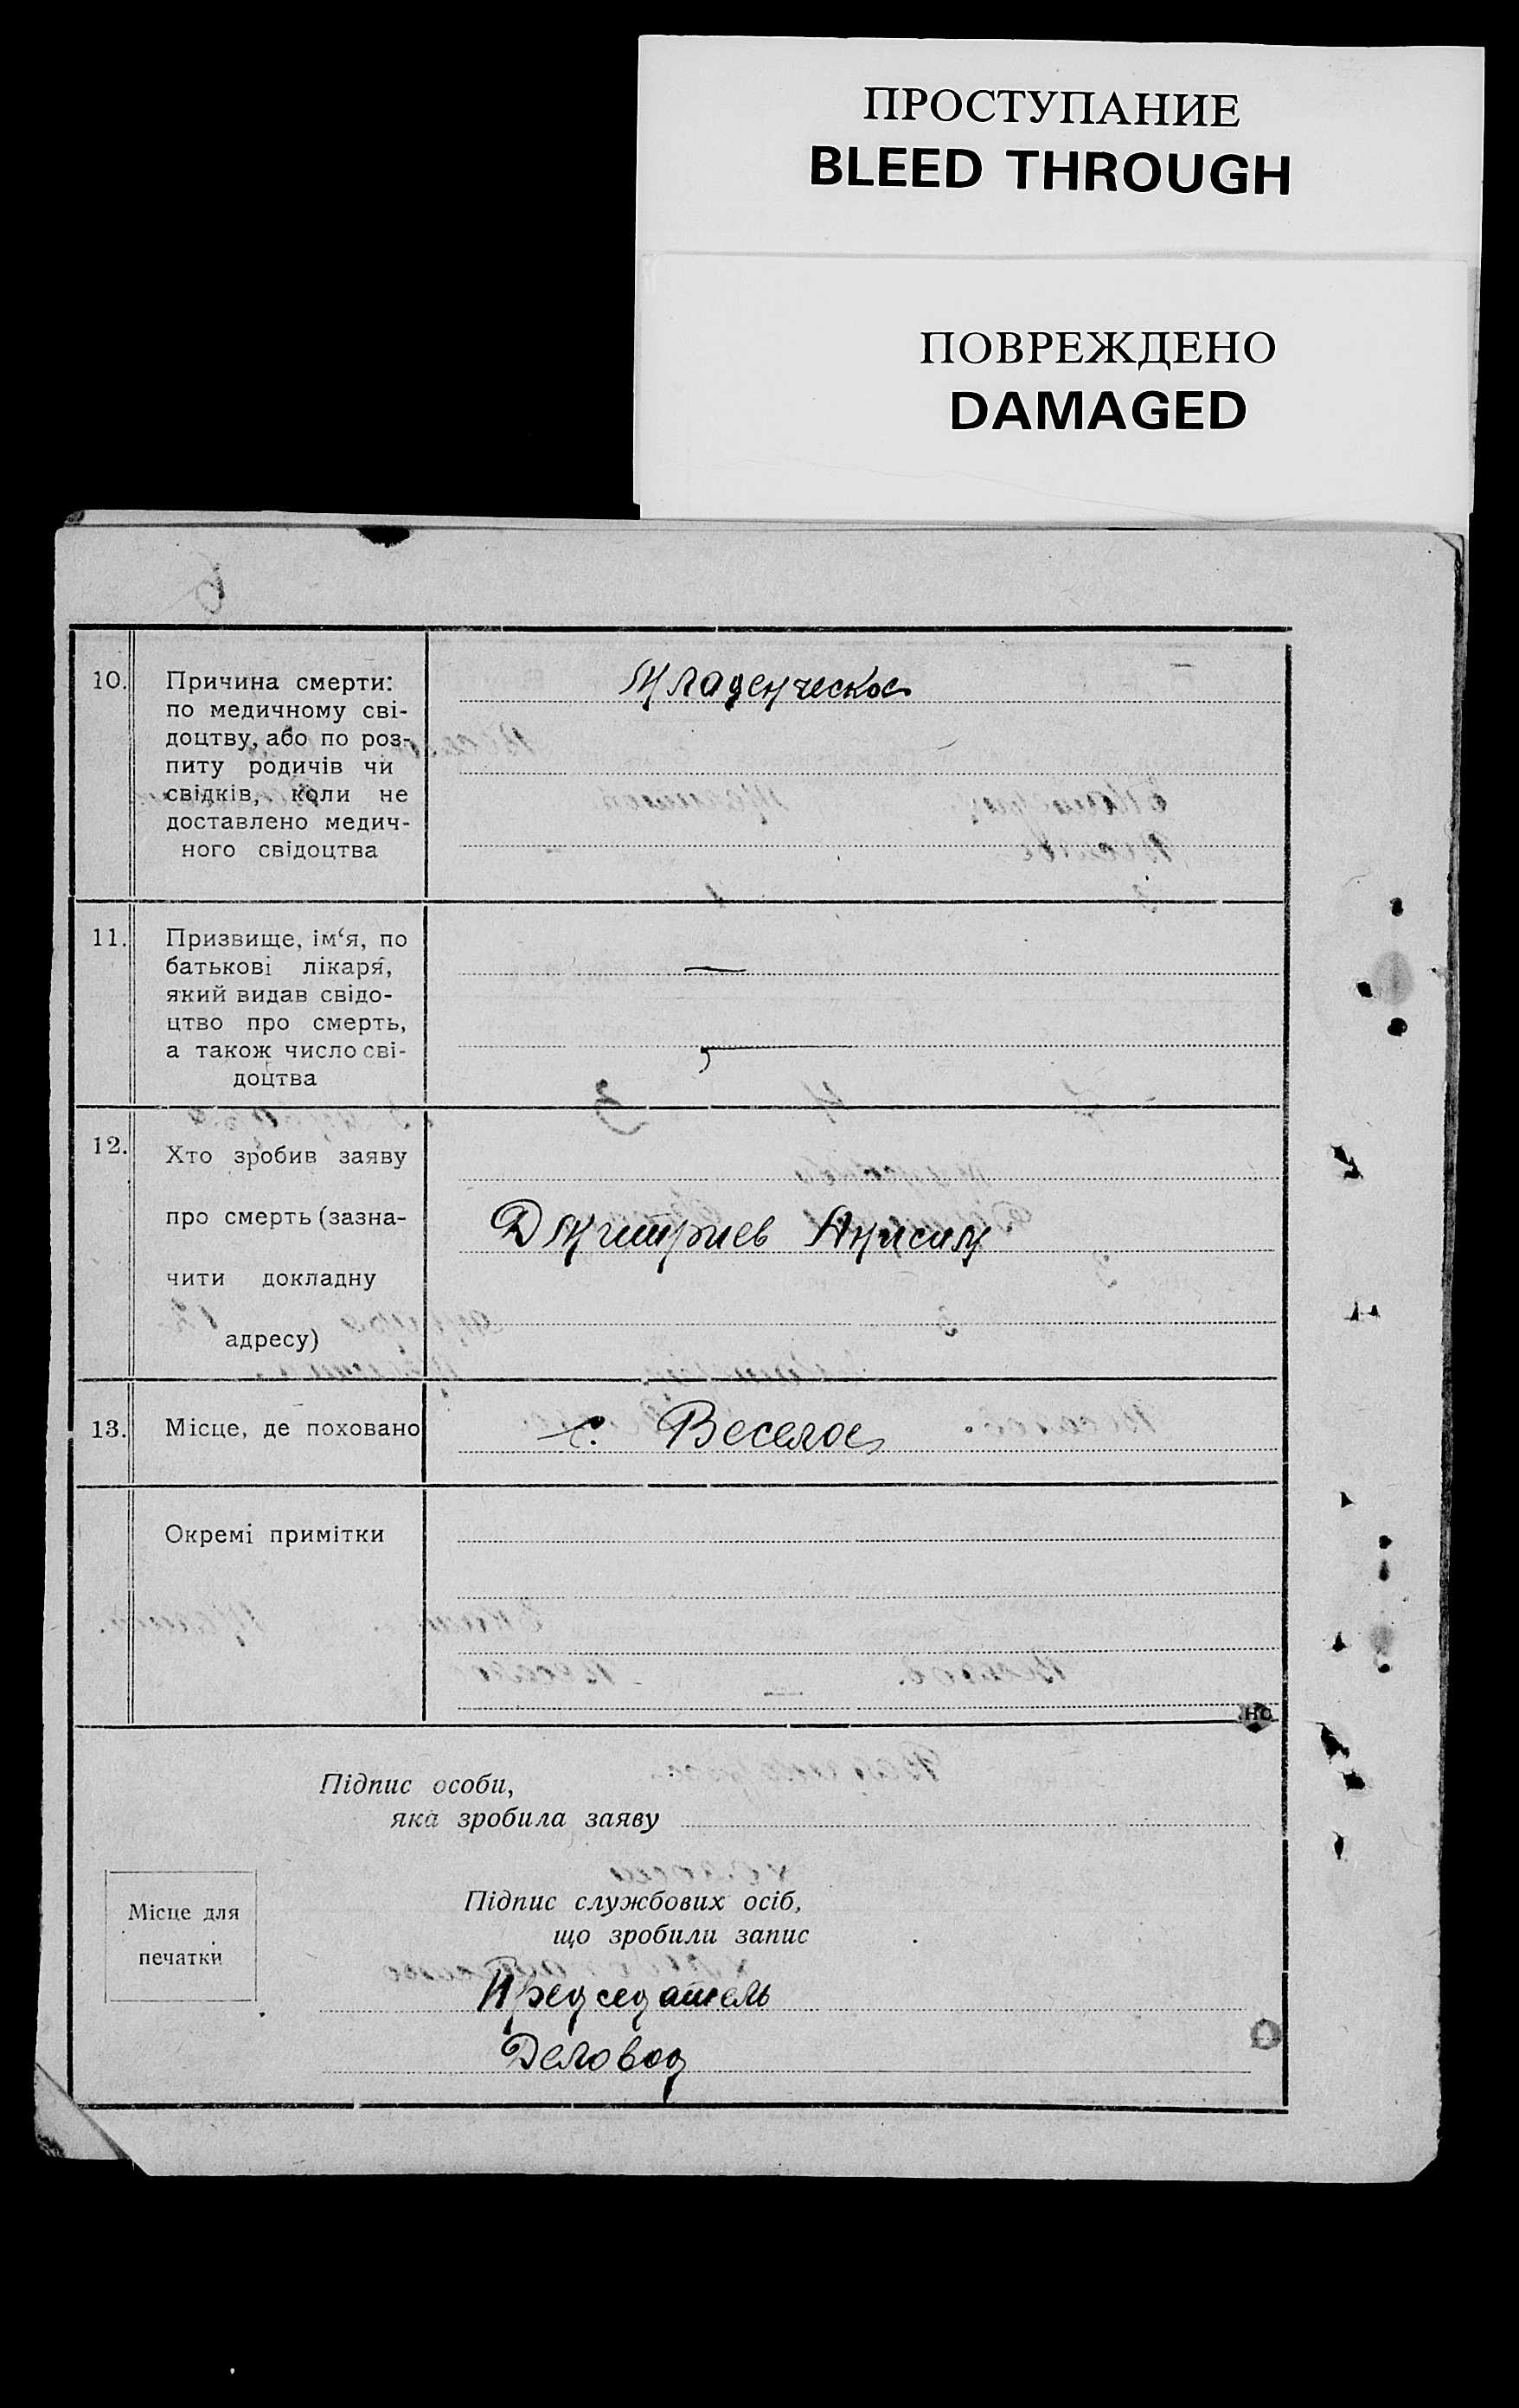 ПРОСТУПАНИЕ
BLEED THROUGH
ПОВРЕЖДЕНО
DAMAGED
10.
Причина смерти:
по медичному сві-
доцтву, або по роз-
питу родичів чи
свідків, коли не
доставлено медич-
ного свідоцтва
Младенческое
11.
Призвище, ім‘я, по
батькові лікаря,
який видав свідо-
цтво про смерть,
а також число сві-
доцтва
—
—
12.
Хто зробив заяву
про смерть (зазна-
чити докладну
адресу)
Дмитриев Анисим
13.
Місце, де поховано
с. Веселое
Окремі примітки
но
Підпис особи,
яка зробила заяву
Місце для
печатки
Підпис службових осіб,
що зробили запис
Председатель
Деловод